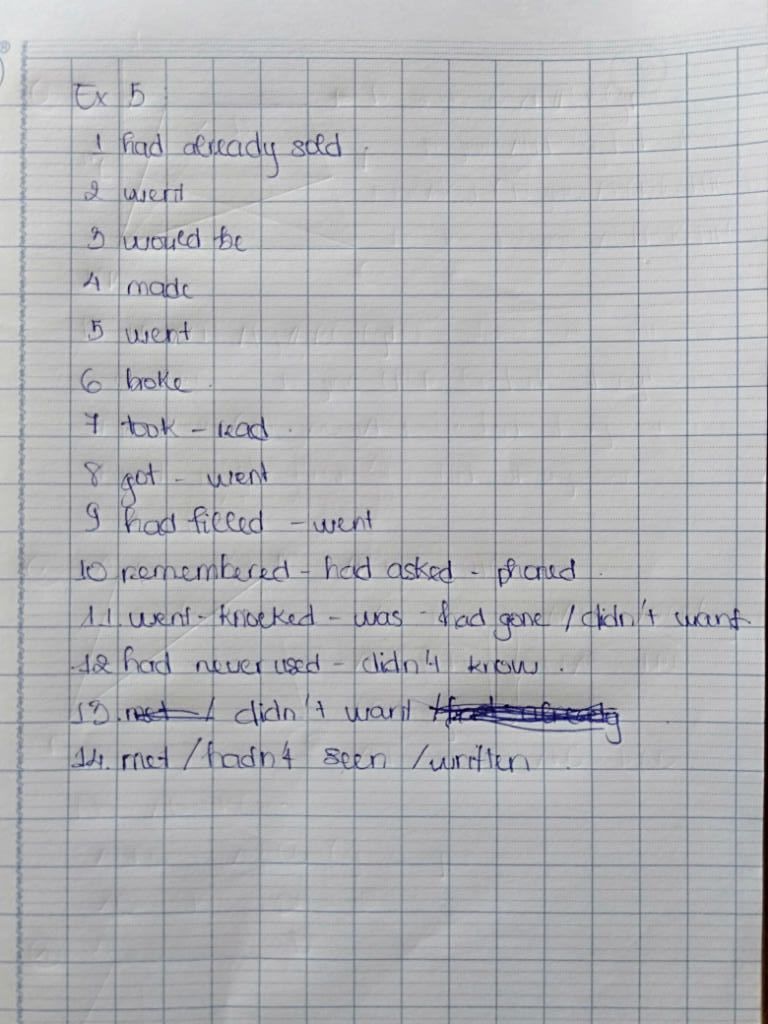 Ex 5
1 had already sold.
2 went
3 would be
4 made
5 went
6 broke.
7 took - read.
8 got - went
9 had filled - went
10 remembered - had asked - phoned.
11. went - knocked - was - had gone / didn't want
12 had never used - didn't know.
13. met / didn't want
14. met / hadn't seen / written.